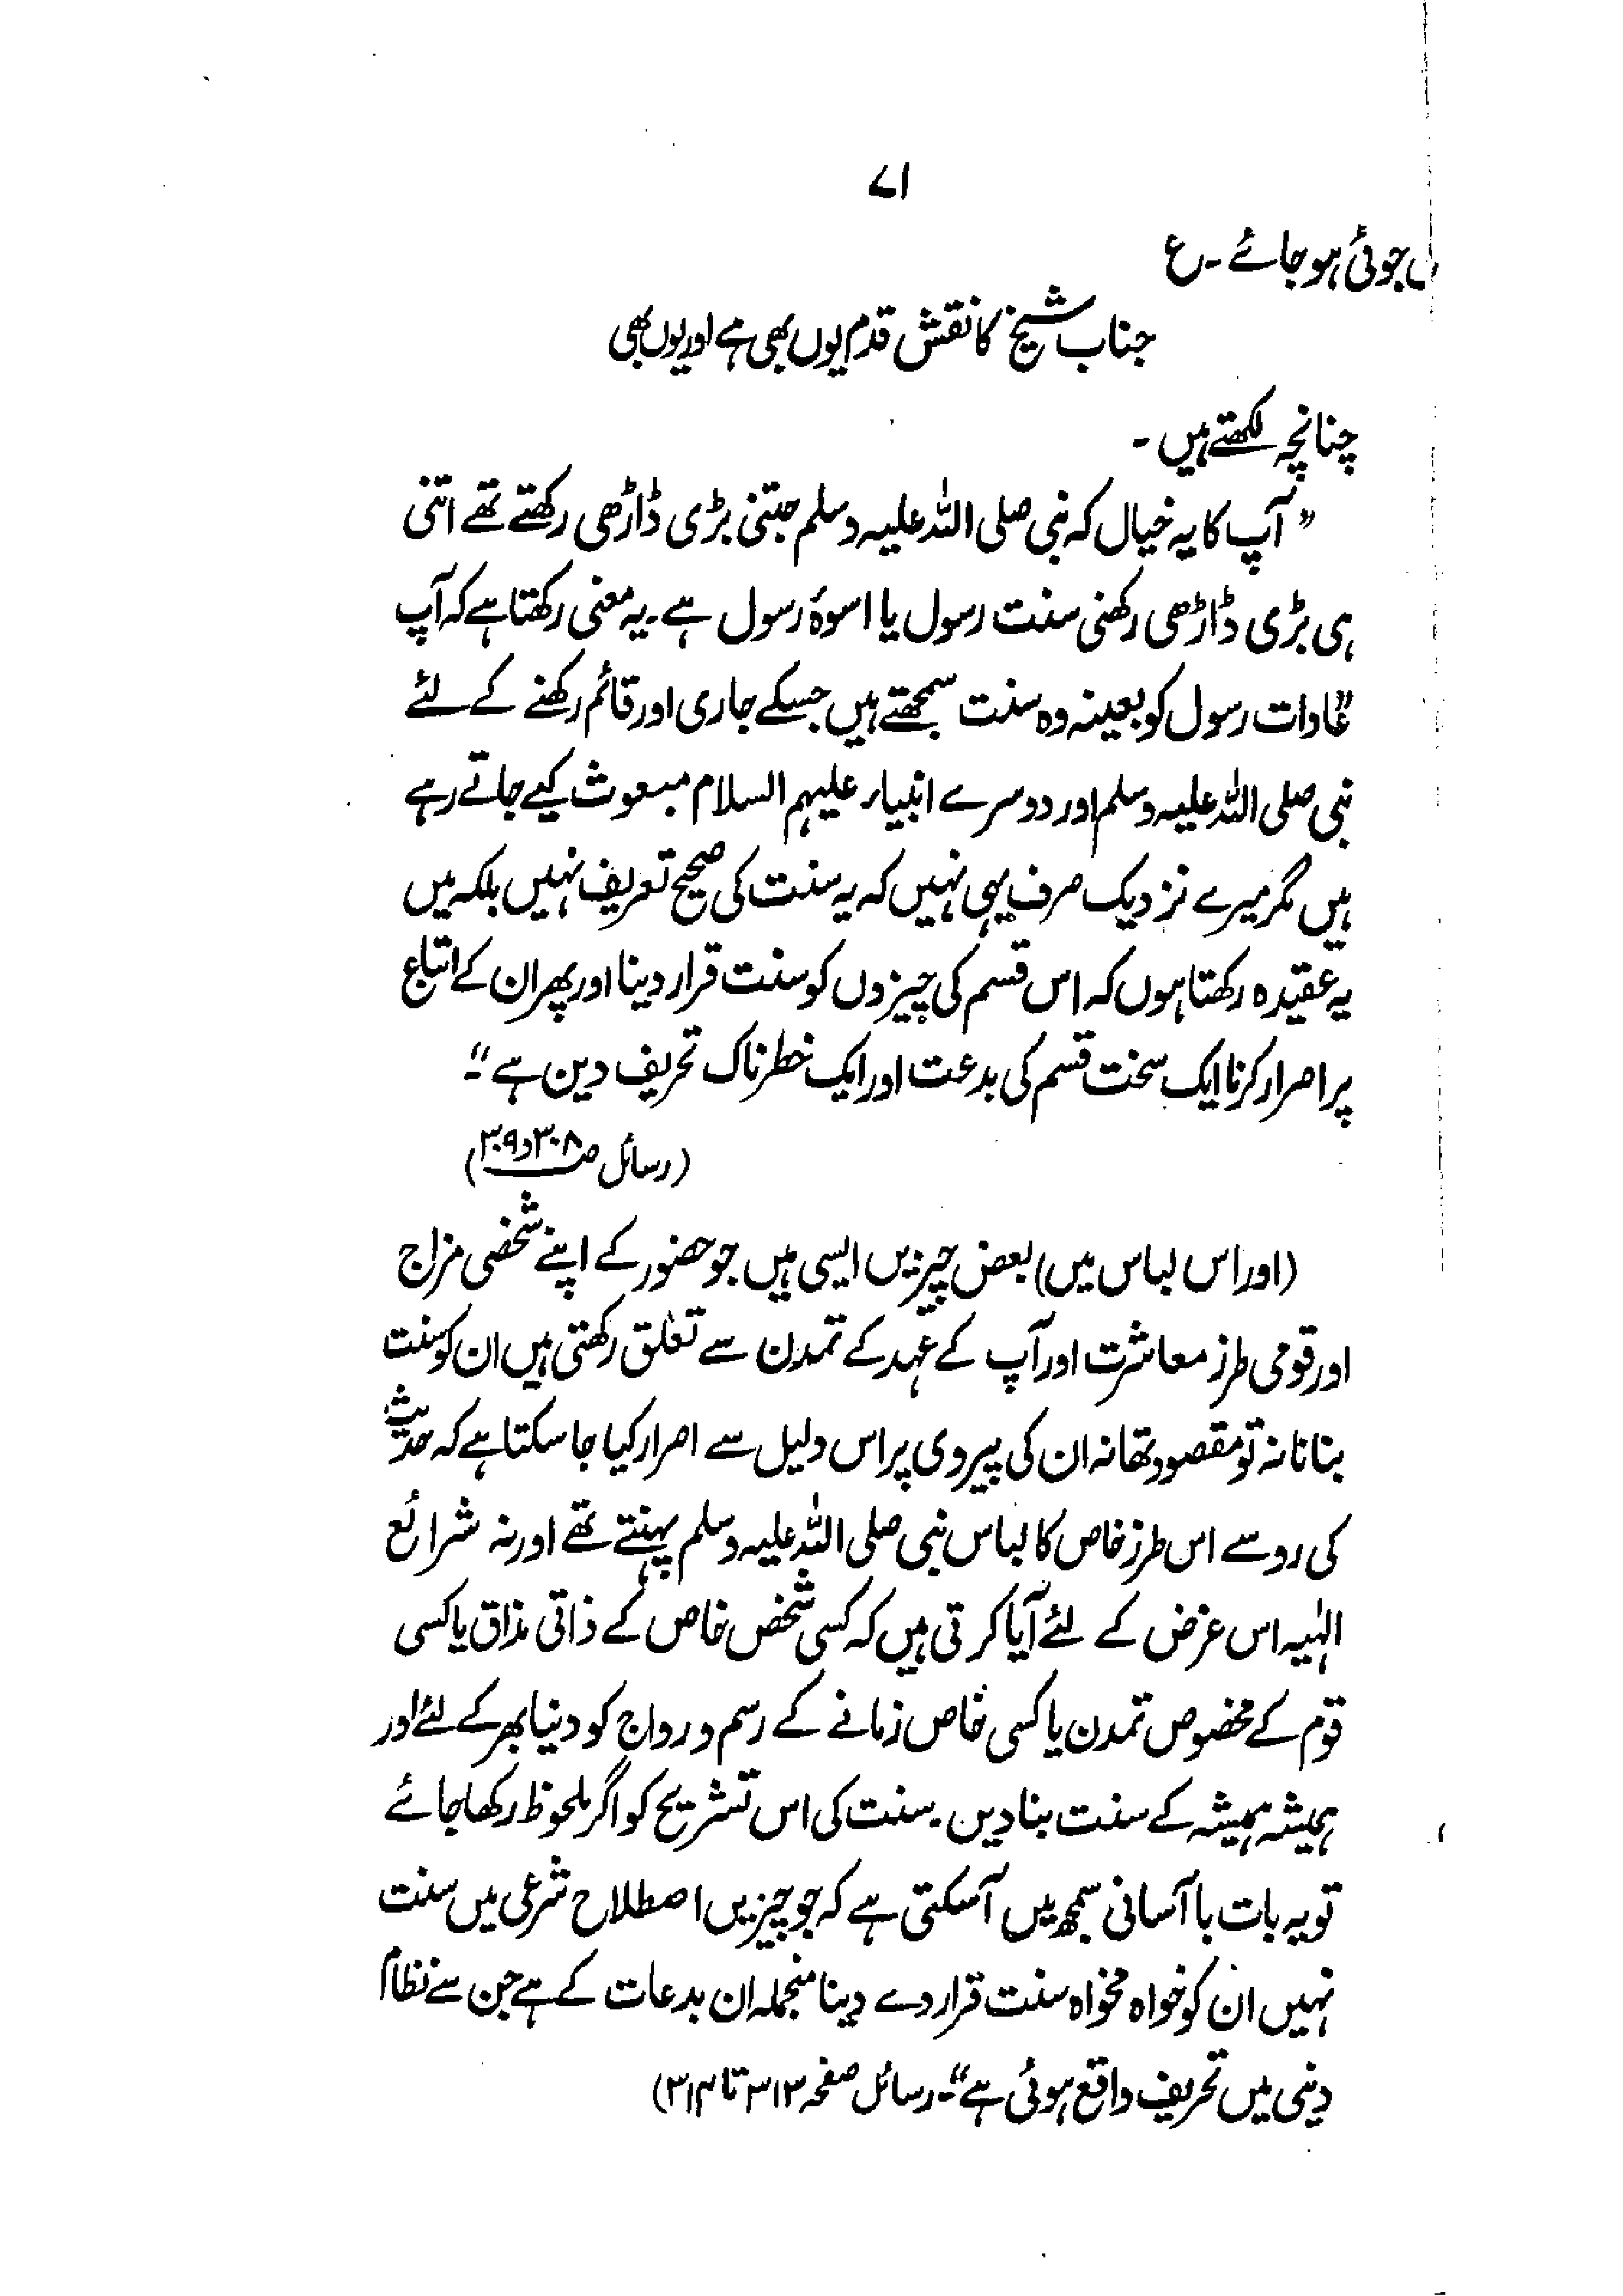 ۷۱
جوئی ہو جائے ۔ ع
جناب شیخ کا نقش قدم یوں بھی ہے اور یوں بھی
چنانچہ لکھتے ہیں ۔
”آپ کا یہ خیال کہ نبی صلی اللہ علیہ وسلم جتنی بڑی ڈاڑھی رکھتے تھے اتنی
ہی بڑی ڈاڑھی رکھنی سنت رسول یا اسوۂ رسول ہے ۔ یہ معنی رکھتا ہے کہ آپ
”عادات رسول کو بعینہ وہ سنت سمجھتے ہیں جسکے جاری اور قائم رکھنے کے لئے
نبی صلی اللہ علیہ وسلم اور دوسرے انبیاء علیہم السلام مبعوث کیے جاتے رہے
ہیں مگر میرے نزدیک صرف یہی نہیں کہ یہ سنت کی صحیح تعریف نہیں بلکہ میں
یہ عقیدہ رکھتا ہوں کہ اس قسم کی چیزوں کو سنت قرار دینا اور پھر ان کے اتباع
پر اصرار کرنا ایک سخت قسم کی بدعت اور ایک خطرناک تحریف دین ہے“۔
(رسائل ص ۳۰۸ و ۳۰۹)
(اور اس لباس میں) بعض چیزیں ایسی ہیں جو حضور کے اپنے شخصی مزاج
اور قومی طرز معاشرت اور آپ کے عہد کے تمدن سے تعلق رکھتی ہیں ان کو سنت
بنانا نہ تو مقصود تھا نہ ان کی پیروی پر اس دلیل سے اصرار کیا جا سکتا ہے کہ حدیث
کی رو سے اس طرز خاص کا لباس نبی صلی اللہ علیہ وسلم پہنتے تھے اور نہ شرائع
الٰہیہ اس غرض کے لئے آیا کرتی ہیں کہ کسی شخص خاص کے ذاتی مذاق یا کسی
قوم کے مخصوص تمدن یا کسی خاص زمانے کے رسم و رواج کو دنیا بھر کے لئے اور
ہمیشہ ہمیشہ کے سنت بنا دیں ۔ سنت کی اس تشریح کو اگر ملحوظ رکھا جائے
تو یہ بات با آسانی سمجھ میں آ سکتی ہے کہ جو چیزیں اصطلاح شرعی میں سنت
نہیں ان کو خواہ مخواہ سنت قرار دے دینا منجملہ ان بدعات کے ہے جن سے نظام
دینی میں تحریف واقع ہوئی ہے“۔ رسائل صفحہ ۳۱۳ تا ۳۱۴)